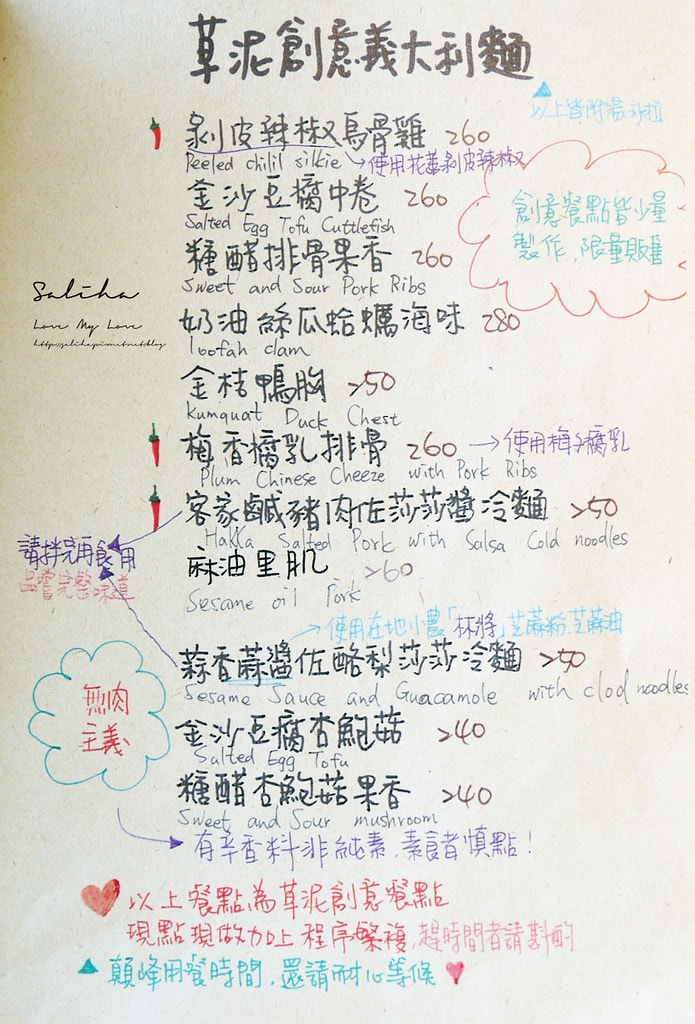 草泥創意義大利麵
以上皆附湯、沙拉
剝皮辣椒烏骨雞 260
Peeled chilil silkie →使用花蓮剝皮辣椒
金沙豆腐中卷 260
Salted Egg Tofu Cuttlefish
創意餐點皆少量
製作,限量販售
糖醋排骨果香 260
Sweet and Sour Pork Ribs
Saliha
Love My Love
奶油絲瓜蛤蠣海味 280
loofah clam
金桔鴨胸 250
Kumquat Duck Chest
梅香腐乳排骨 260 →使用梅子腐乳
Plum Chinese Cheeze with Pork Ribs
客家鹹豬肉佐莎莎醬冷麵 250
Hakka Salted Pork with Salsa Cold noodles
請拌完再食用
品嚐完整味道
麻油里肌 260
Sesame oil Pork
→使用在地小農「林將」芝蔴粉.芝蔴油
蒜香蔴醬佐酪梨莎莎冷麵 250
Sesame Sauce and Guacamole with clod noodles
無肉
主義
金沙豆腐杏鮑菇 240
Salted Egg Tofu
糖醋杏鮑菇果香 240
Sweet and Sour mushroom
有辛香料非純素,素食者慎點!
以上餐點為草泥創意餐點
現點現做加上程序繁複,趕時間者請斟酌
顛峰用餐時間,還請耐心等候